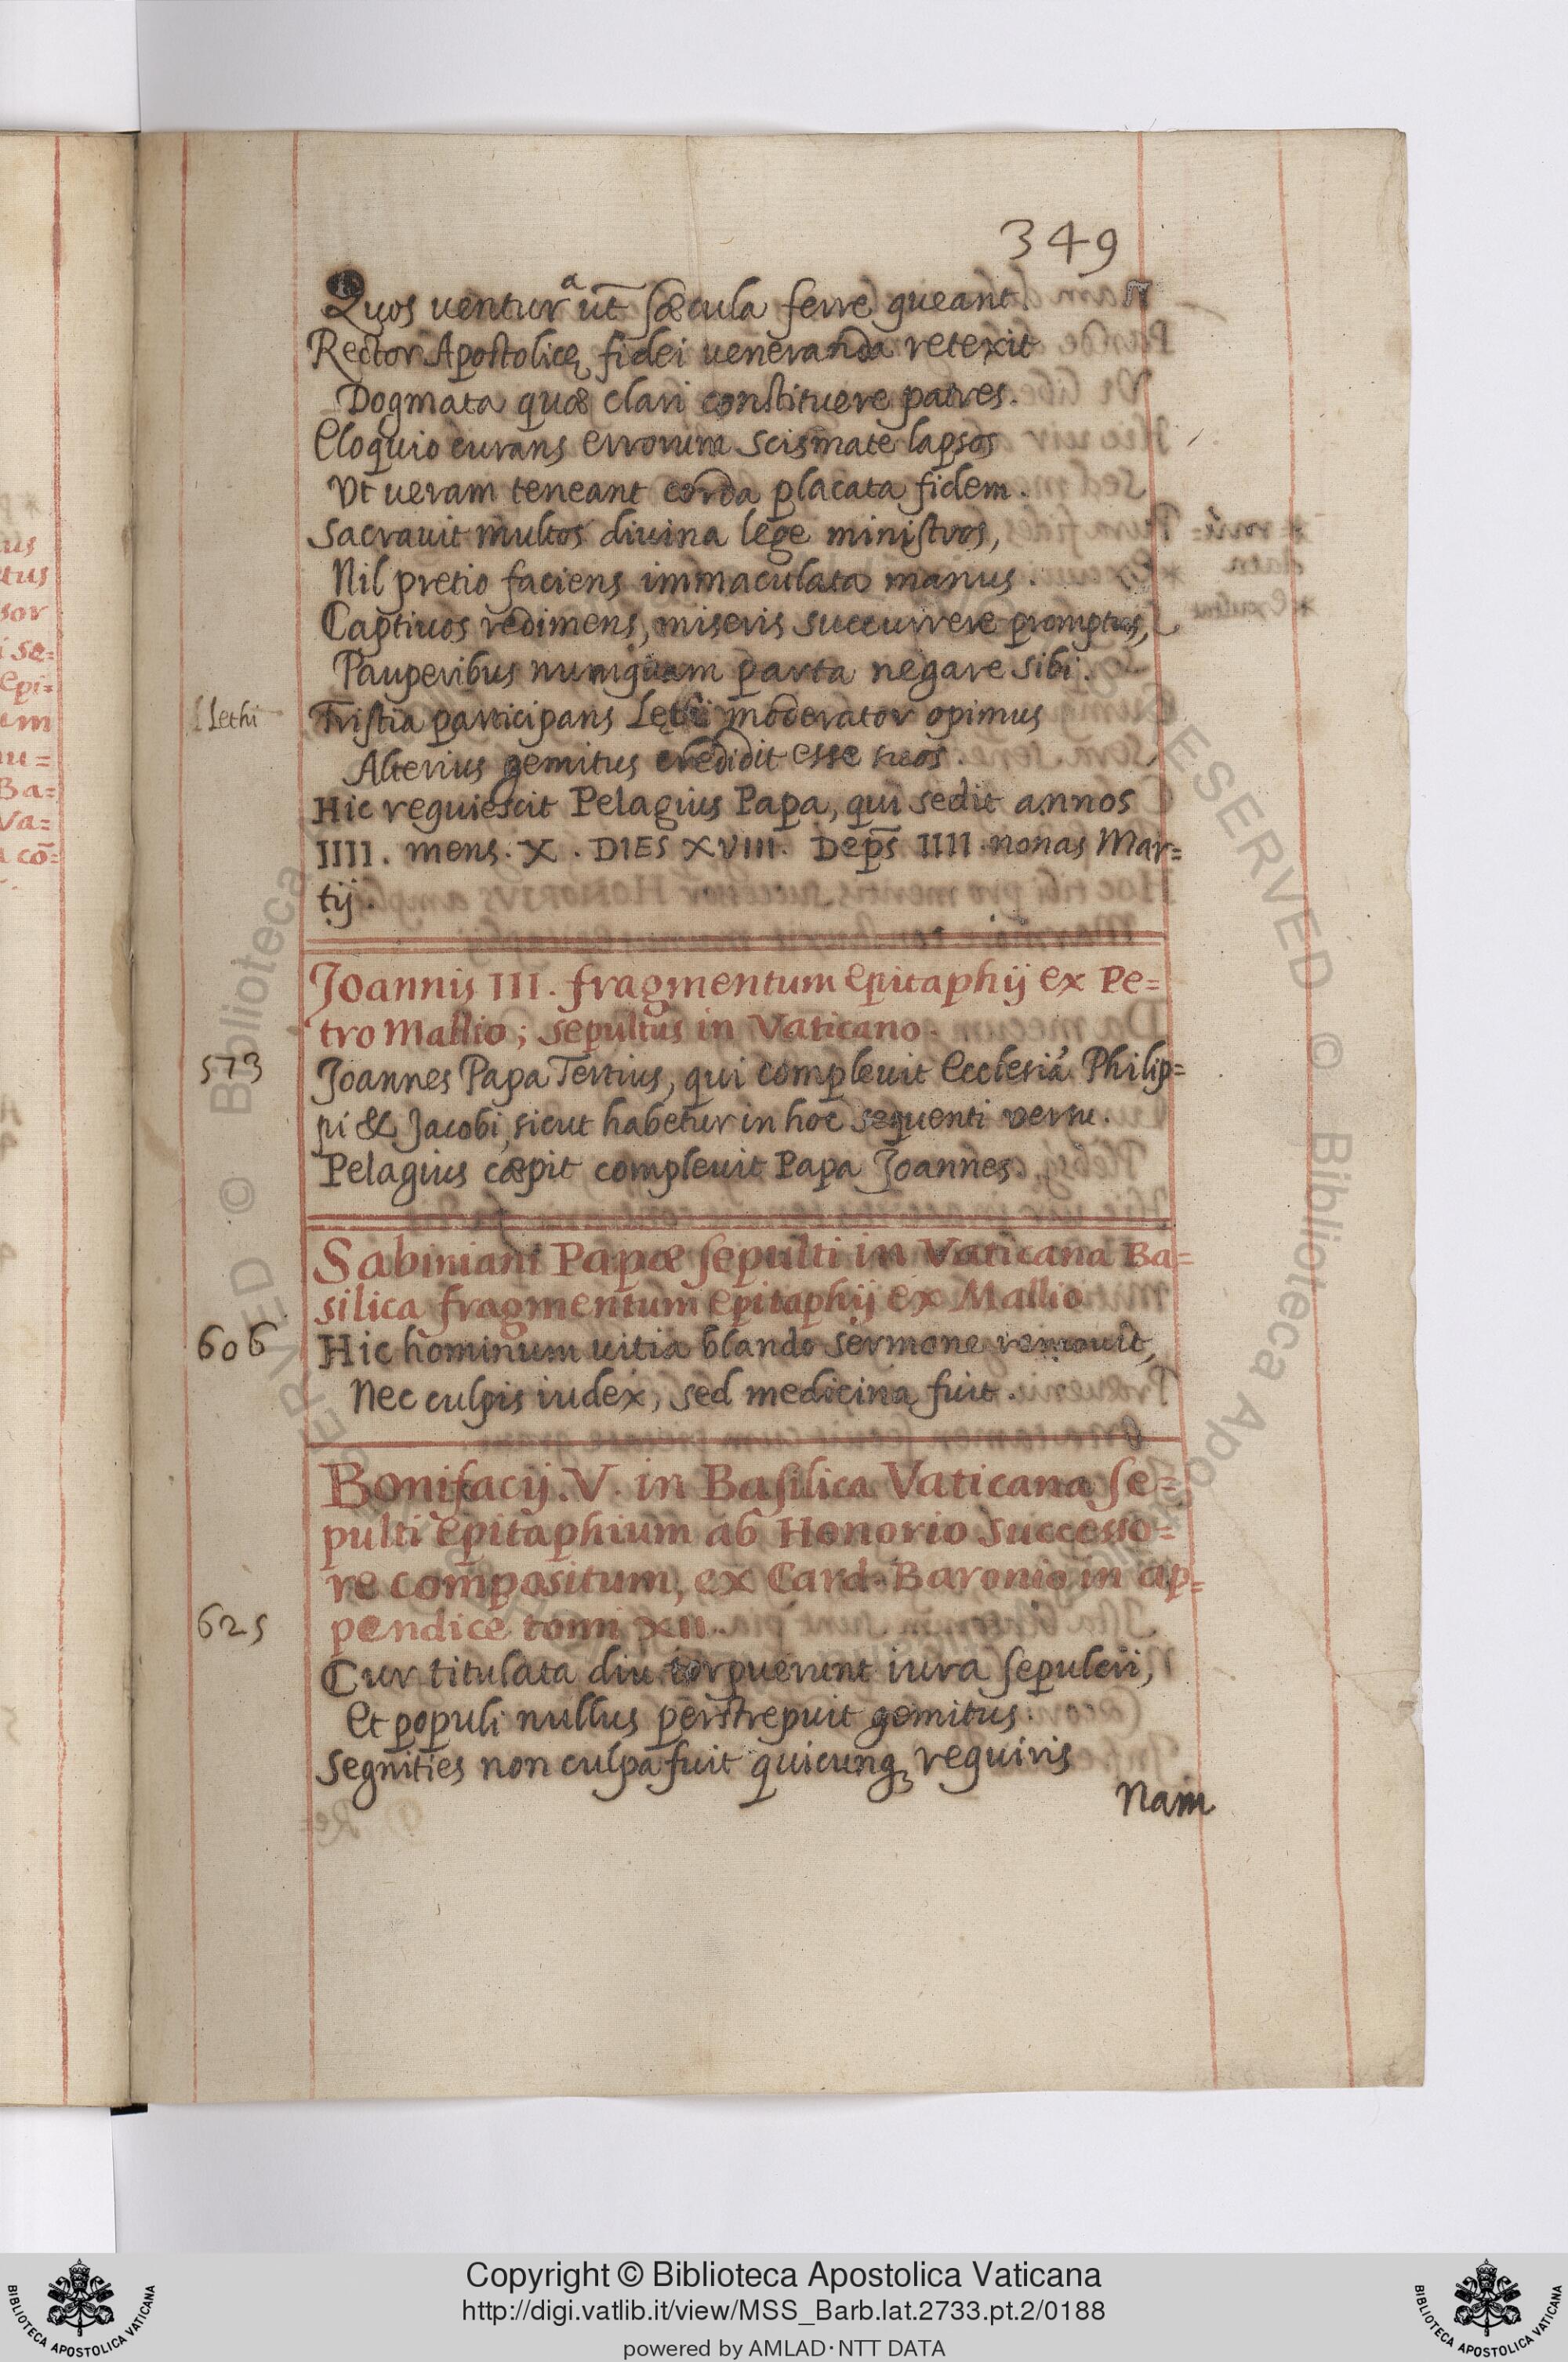 349
Quos ventura ut sæcula ferre queant.
Rector Apostolicę fidei veneranda retexit
Dogmata quæ clari constituere patres.
Eloquio curans errorum scismate lapsos
Vt ueram teneant corda placata fidem.
Sacrauit multos diuina lege ministros,
Nil pretio faciens immaculata manus.
Captiuos redimens, miseris succurrere promptus,
Pauperibus numquam parta negare sibi.
Lethi
Tristia participans moderator opimus
Alterius gemitus credidit esse suos.
Hic requiescit Pelagius Papa, qui sedit annos
IIII. mens. X. DIES XVIII. Dep̄s IIII. nonas Mar=
tij.
Joannis III. fragmentum epitaphij ex Pe=
tro Mallio; sepultus in Vaticano.
573
Joannes Papa Tertius, qui compleuit Ecclesiā Philip=
pi & Jacobi, sicut habetur in hoc sequenti versu.
Pelagius cæpit compleuit Papa Joannes.
Sabiniani Papæ sepulti in Vaticana Ba=
silica fragmentum epitaphij ex Mallio
606
Hic hominum uitia blando sermone remouit,
Nec culpis iudex, sed medicina fuit.
Bonifacij. V. in Basilica Vaticana se=
pulti epitaphium ab Honorio successo=
re compositum, ex Card. Baronio in ap=
625
pendice tomi XII.
Cur titulata diu torpuerunt iura sepulcri,
Et populi nullus perstrepuit gemitus.
Segnities non culpa fuit quicunq; requiris
Nam
Copyright © Biblioteca Apostolica Vaticana
http://digi.vatlib.it/view/MSS_Barb.lat.2733.pt.2/0188
powered by AMLAD·NTT DATA